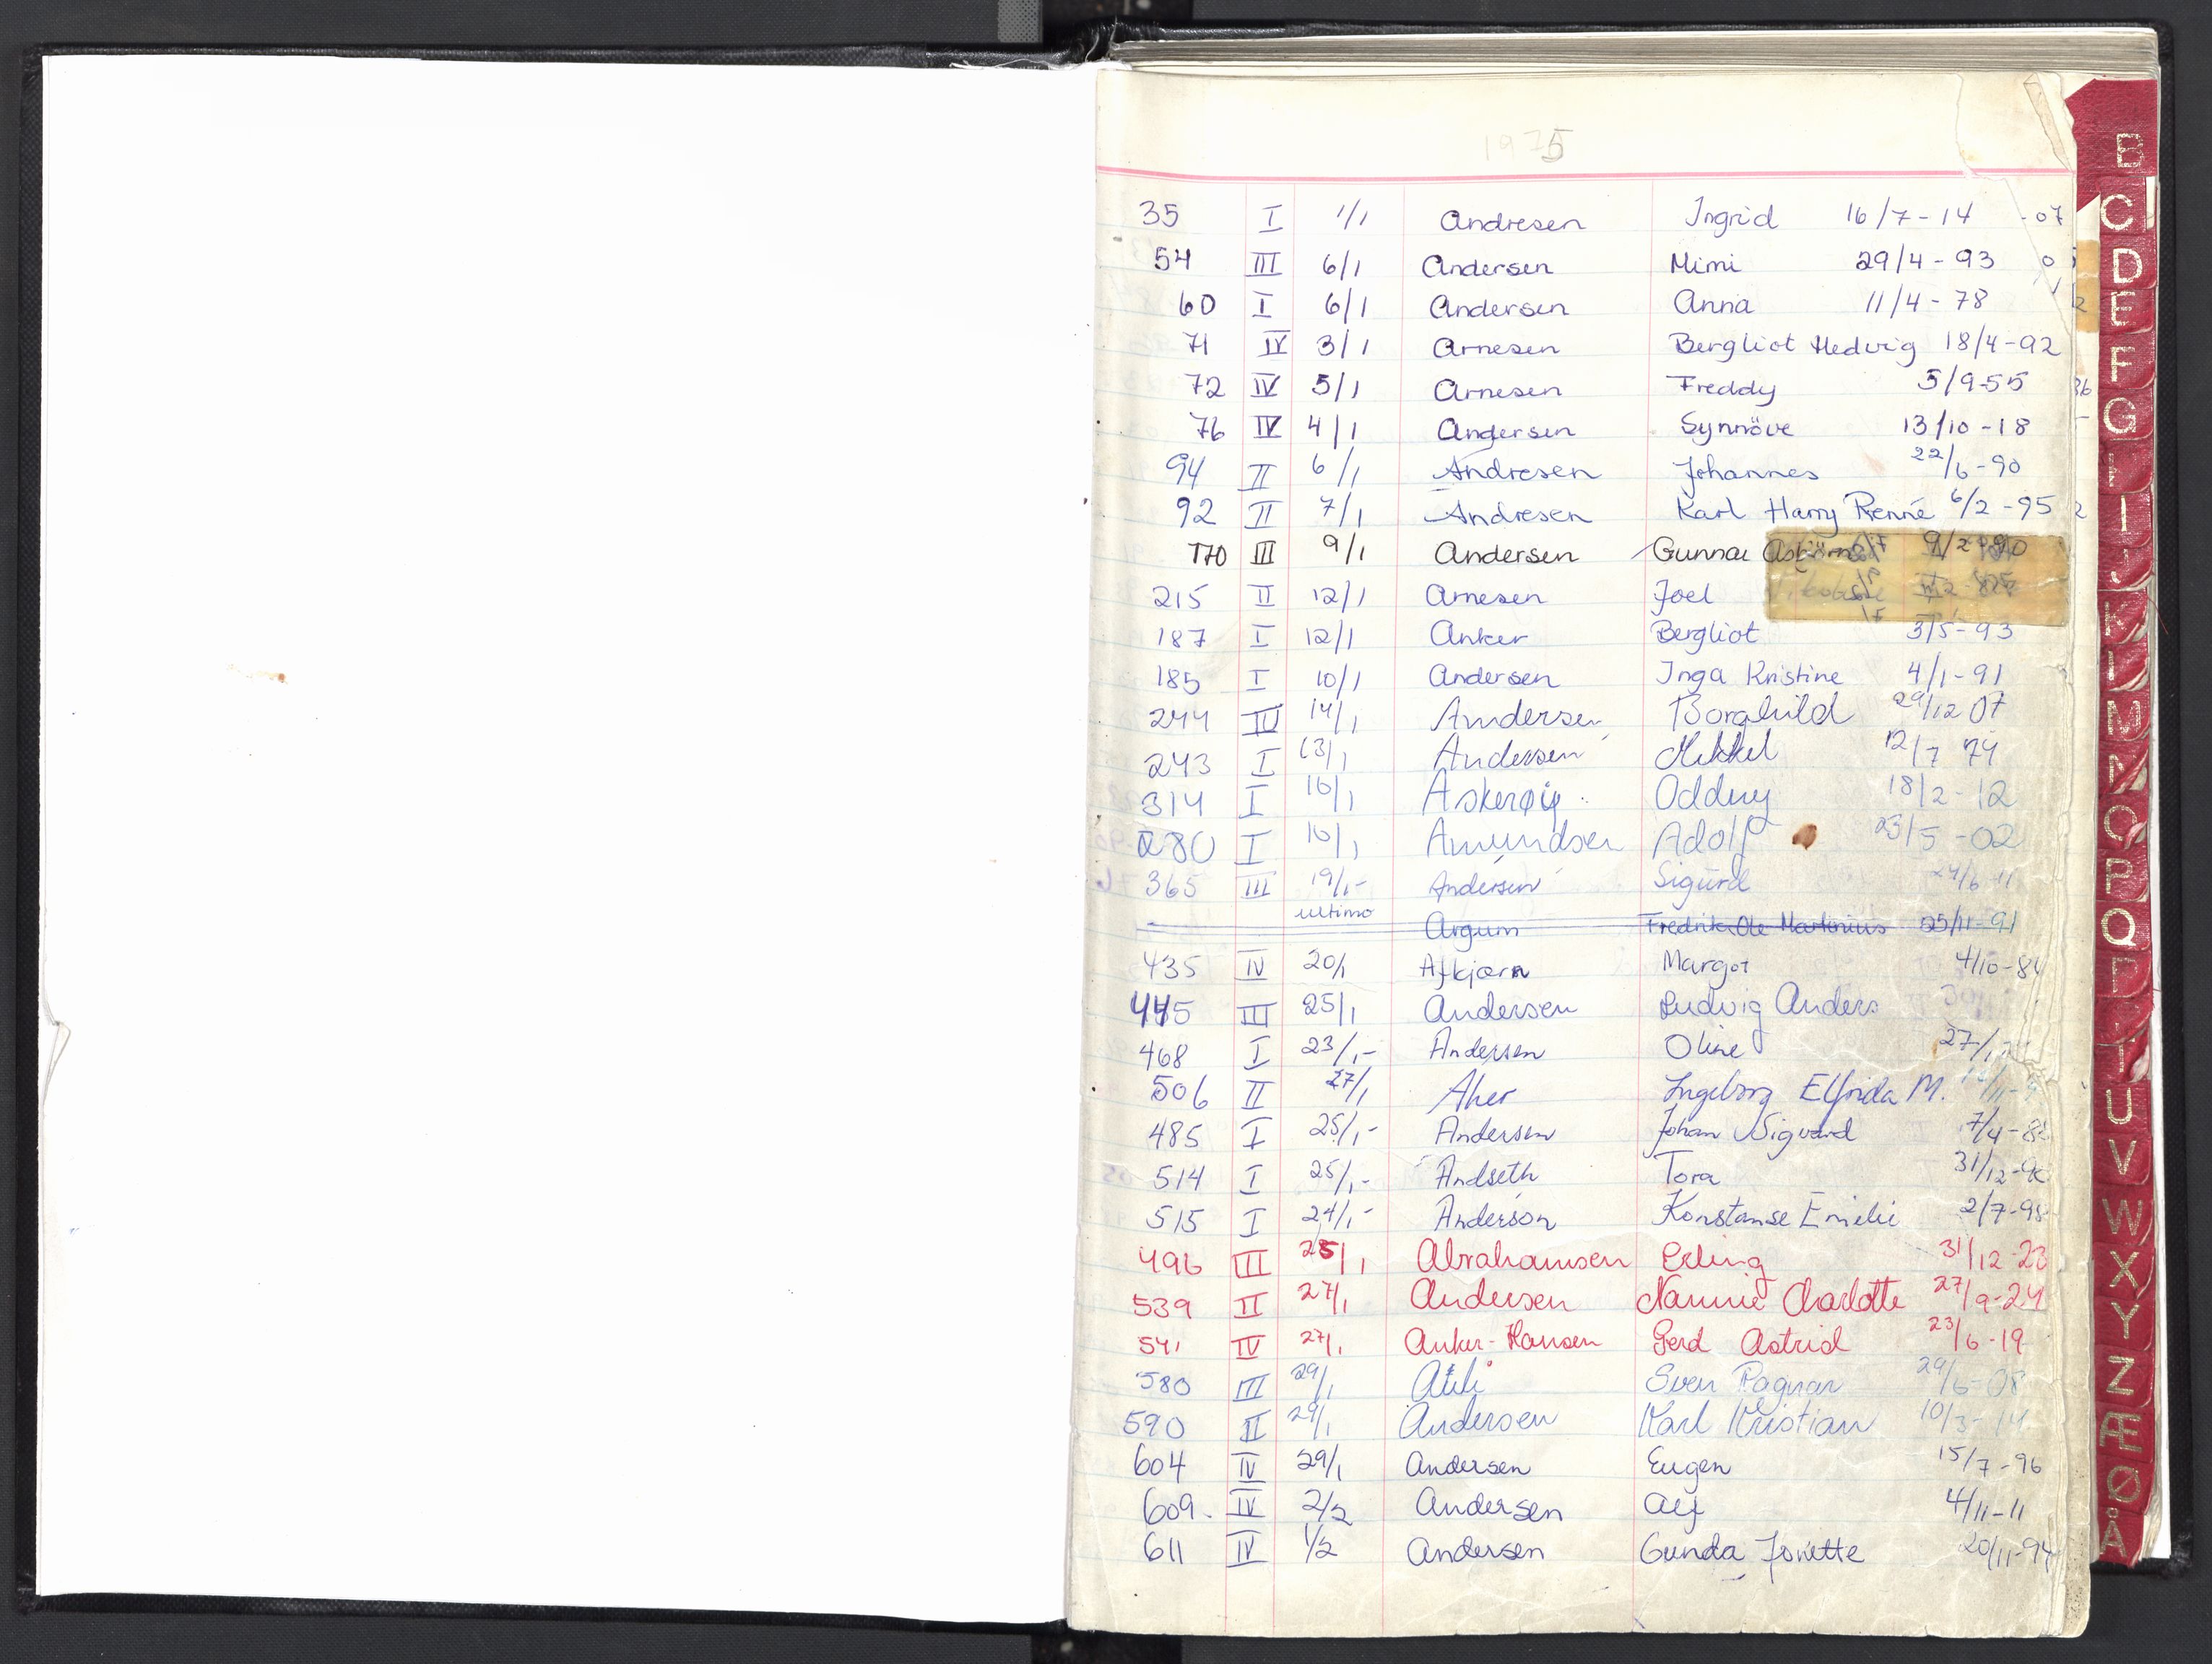 1975
35 I 1/1 Andresen Ingrid 16/7-14 -07
54 III 6/1 Andersen Mimi 29/4-93
60 I 6/1 Andersen Anna 11/4-78
71 IV 3/1 Arnesen Bergliot Hedvig 18/4-92
72 IV 5/1 Arnesen Freddy 5/9-55
76 IV 4/1 Andersen Synnöve 13/10-18
94 II 6/1 Andresen Johannes 22/6-90
92 II 7/1 Andresen Karl Harry Renné 6/2-95
170 III 9/1 Andersen Gunnar 9/2-90
215 II 12/1 Arnesen Joel
187 I 12/1 Anker Bergliot 3/5-93
185 I 10/1 Andersen Inga Kristine 4/1-91
244 IV 14/1 Andersen Borghild 29/12 07
243 I 13/1 Andersen Mikkel 12/7 74
314 I 16/1 Askerøy Oddny 18/2-12
280 I 16/1 Amundsen Adolf 23/5-02
365 III 19/1- Andersen Sigurd 24/6 11
ultimo Argum Fredrik Ole Martinius 25/11-91
435 IV 20/1 Afkjærn Margot 4/10-84
445 III 25/1 Andersen Ludvig Anders
468 I 23/1- Andersen Oline 27/1
506 II 27/1 Aker Ingeborg Elfrida M.
485 I 25/1- Andersen Johan Sigvard 7/4-8
514 I 25/1- Andseth Tora 31/12-90
515 I 24/1- Anderson Konstanse Emilie 2/7-98
496 III 25/1 Abrahamsen Erling 31/12-23
539 II 27/1 Andersen Nannie Charlotte 27/9-24
541 IV 27/1 Anker-Hansen Gerd Astrid 23/6-19
580 III 29/1 Sven Ragnar 29/6-08
590 II 29/1 Andersen Karl Kristian 10/3-14
604 IV 29/1 Andersen Eugen 15/7-96
609. IV 2/2 Andersen Alf 4/11-11
611 IV 1/2 Andersen Gunda Jonette 20/11-94
B
C
D
E
F
G
I
J
K
M
N
O
P
Q
T
U
V
W
X
Y
Z
Æ
Ø
Å